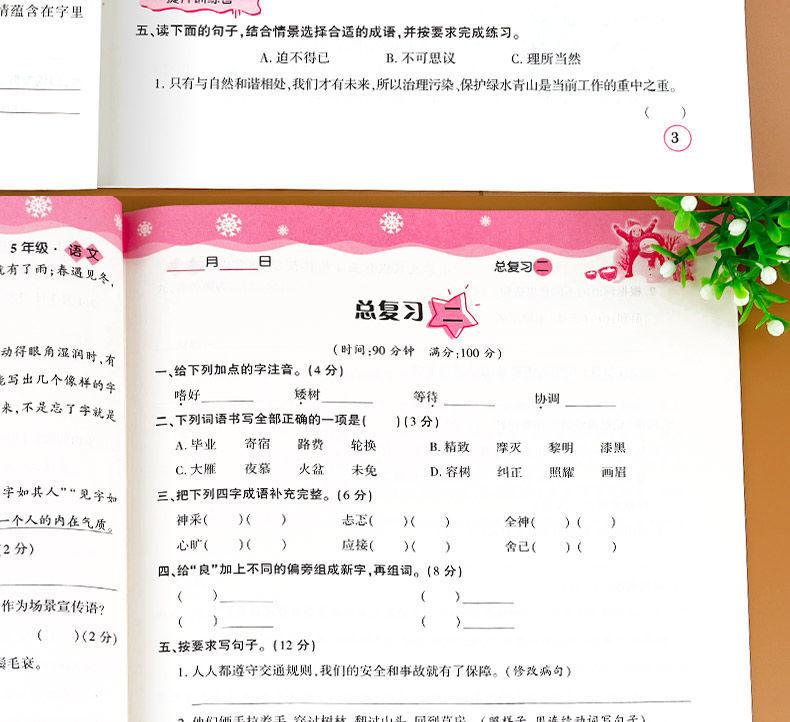 情蕴含在字里
五、读下面的句子,结合情景选择合适的成语,并按要求完成练习。
A. 迫不得已 B. 不可思议 C. 理所当然
1. 只有与自然和谐相处,我们才有未来,所以治理污染、保护绿水青山是当前工作的重中之重。
( )
3
5年级·语文
就有了雨;春遇见冬,
动得眼角湿润时,有
能写出几个像样的字
来,不是忘了字就是
字如其人”“见字如
一个人的内在气质。
(2分)
作为场景宣传语?
( )(2分)
鬓毛衰。
____月____日
总复习二
总复习 二
(时间:90分钟 满分:100分)
一、给下列加点的字注音。(4分)
嗜好______ 矮树______ 等待______ 协调______
二、下列词语书写全部正确的一项是( )(3分)
A. 毕业 寄宿 路费 轮换 B. 精致 摩灭 黎明 漆黑
C. 大雁 夜慕 火盆 未免 D. 容树 纠正 照耀 画眉
三、把下列四字成语补充完整。(6分)
神采( )( ) 忐忑( )( ) 全神( )( )
心旷( )( ) 应接( )( ) 舍己( )( )
四、给“良”加上不同的偏旁组成新字,再组词。(8分)
( )______ ( )______
( )______ ( )______
五、按要求写句子。(12分)
1. 人人都遵守交通规则,我们的安全和事故就有了保障。(修改病句)
2. 他们俩手拉着手,穿过树林,翻过山头,回到草房。(照样子,用连续动词写句子)